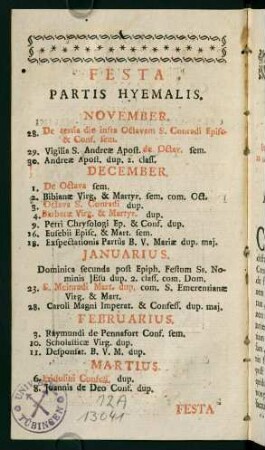 FESTA
PARTIS HYEMALIS.
NOVEMBER.
28. De tertia die infra Octavam S. Conradi Episc.
& Conf. sem.
29. Vigilia S. Andreæ Apost. de Octav. sem.
30. Andreæ Apost. dup. 2. class.
DECEMBER.
1. De Octava sem.
2. Bibianæ Virg. & Martyr. sem. com. Oct.
3. Octava S. Conradi dup.
4. Barbaræ Virg. & Martyr. dup.
9. Petri Chrysologi Ep. & Conf. dup.
16. Eusebii Episc. & Mart. sem.
18. Exspectationis Partûs B. V. Mariæ dup. maj.
JANUARIUS.
Dominica secunda post Epiph. Festum SS. No-
minis JEsu dup. 2. class. com. Dom.
23. S. Meinradi Mart. dup. com. S. Emerentianæ
Virg. & Mart.
28. Caroli Magni Imperat. & Confess. dup. maj.
FEBRUARIUS.
3. Raymundi de Pennafort Conf. sem.
10. Scholasticæ Virg. dup.
11. Desponsat. B. V. M. dup.
MARTIUS.
6. Fridolini Confess. dup.
8. Joannis de Deo Conf. dup.
12A
13041
FESTA
TÜBINGEN